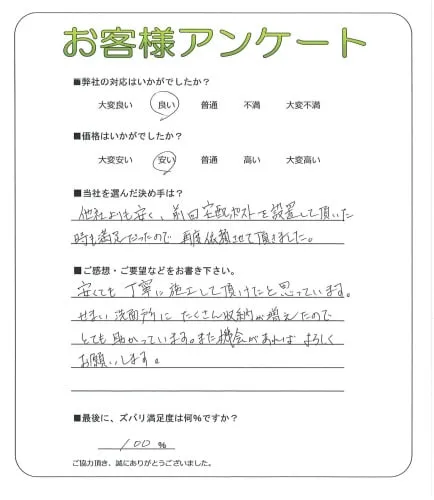 お客様アンケート
■弊社の対応はいかがでしたか？
大変良い 良い 普通 不満 大変不満
■価格はいかがでしたか？
大変安い 安い 普通 高い 大変高い
■当社を選んだ決め手は？
他社よりも安く、前回宅配ポストを設置して頂いた
時も満足だったので 再度依頼させて頂きました。
■ご感想・ご要望などをお書き下さい。
安くても丁寧に施工して頂けたと思っています。
せまい洗面所にたくさん収納が増えたので
とても助かっています。また機会があれば よろしく
お願いします。
■最後に、ズバリ満足度は何％ですか？
100 %
ご協力頂き、誠にありがとうございました。